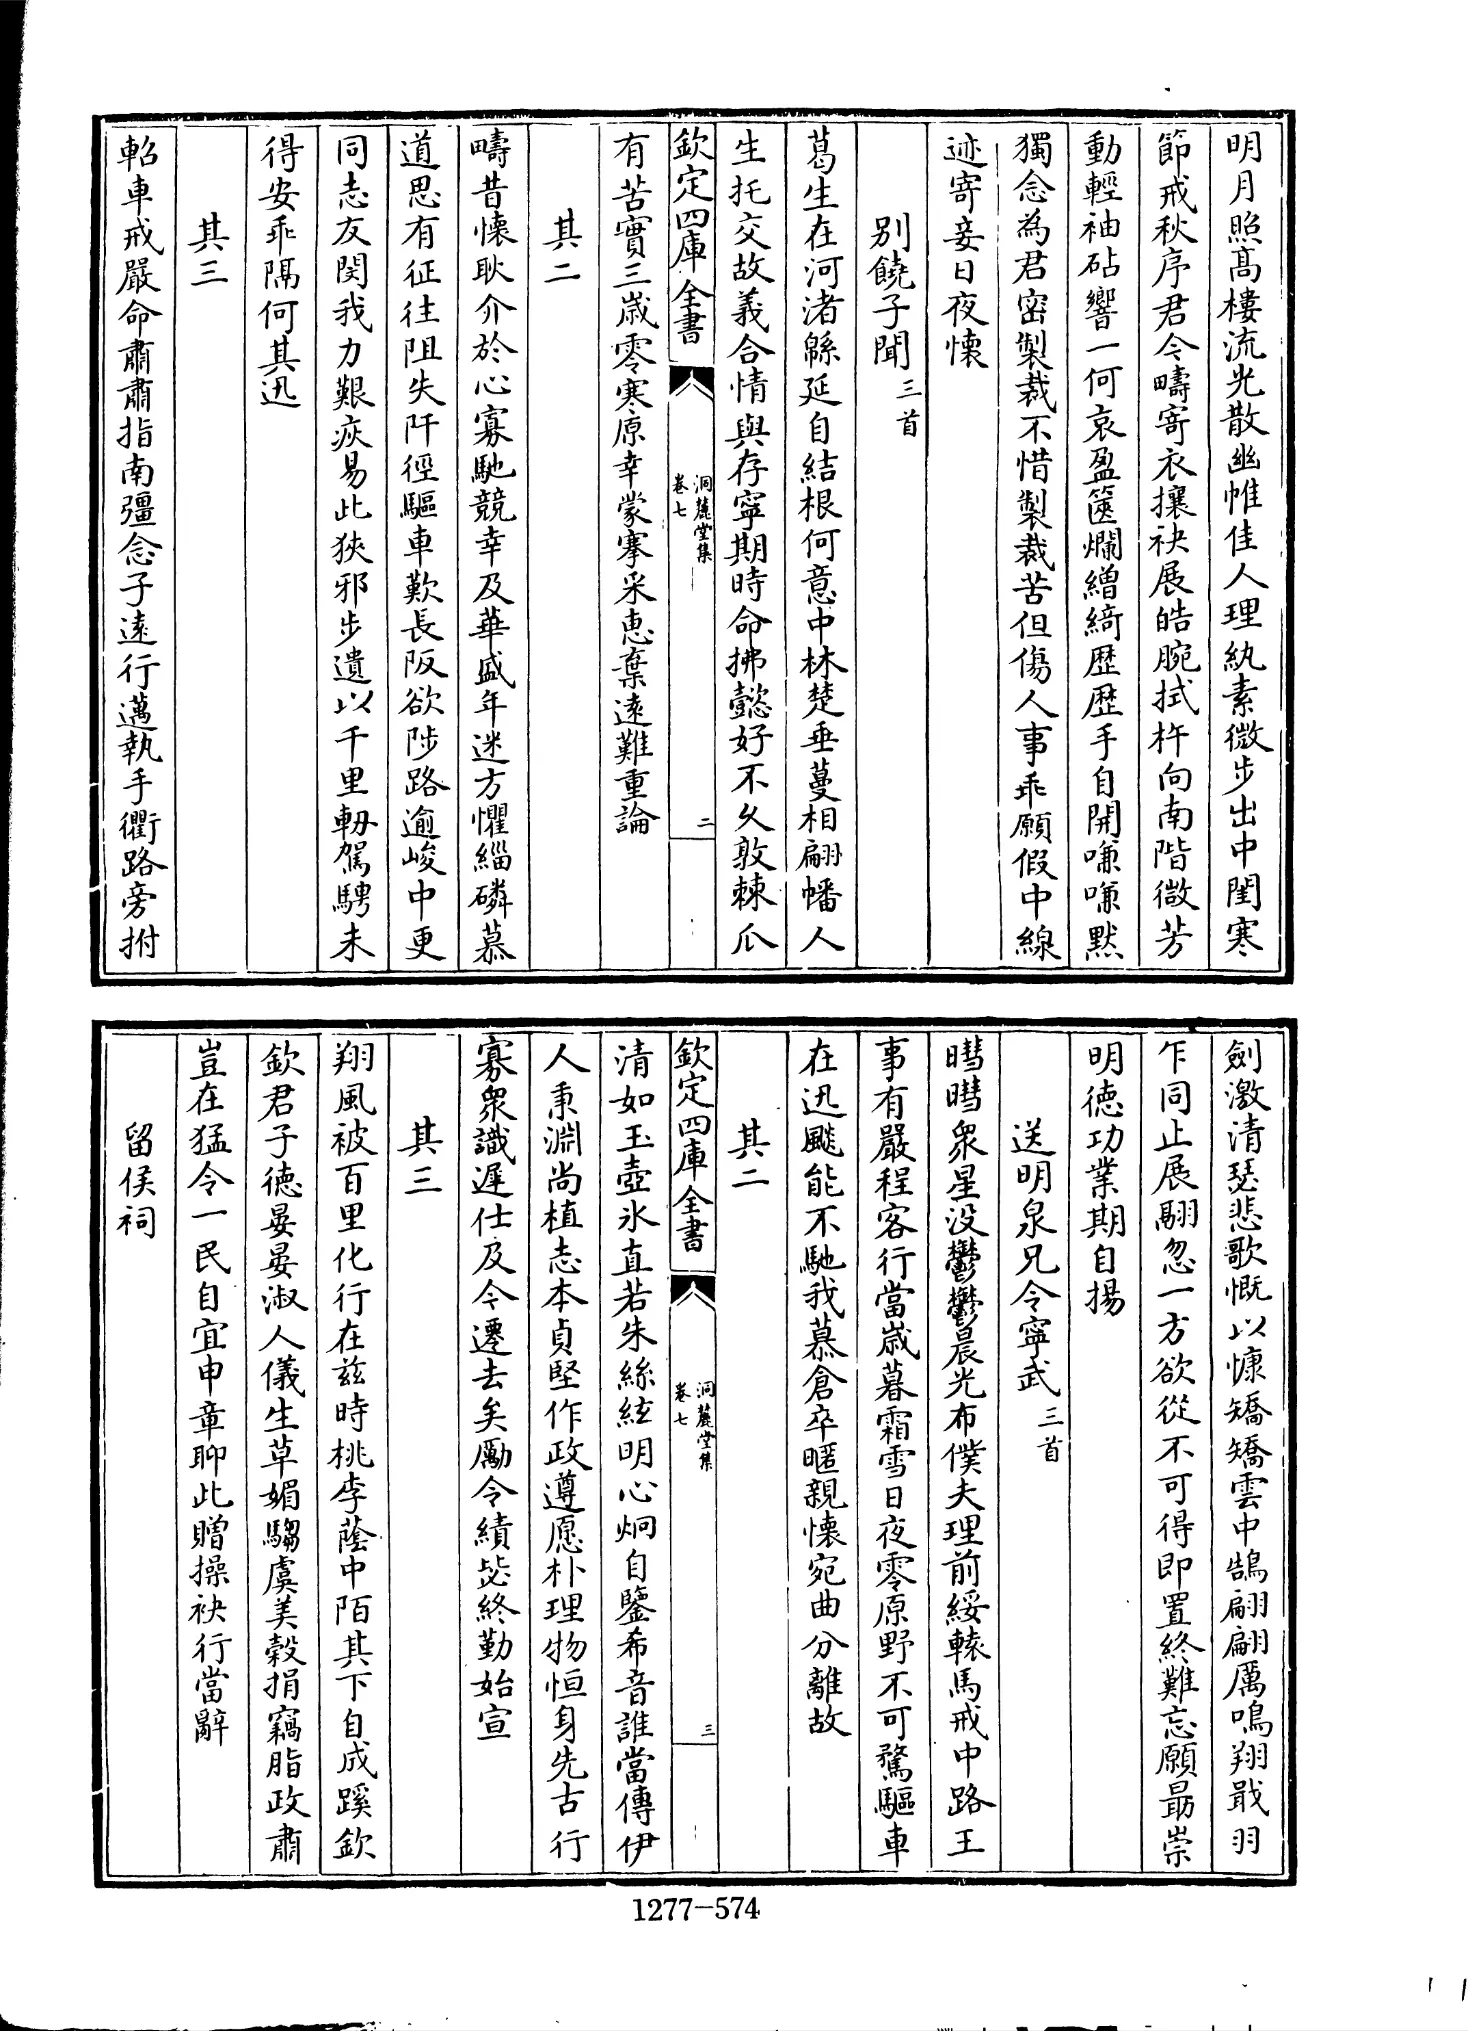 明月照髙樓流光散幽帷佳人理紈素微步出中閨寒
節戒秋序君令疇寄衣攘袂展皓腕拭杵向南階微芳
動輕袖砧響一何哀盈篋爛繒綺歴歴手自開嗛嗛默
獨念為君密製裁不惜製裁苦但傷人事乖願假中線
迹寄妾日夜懐
别饒子聞三首
葛生在河渚緜延自結根何意中林楚垂蔓相翩幡人
生托交故義合情與存寧期時命拂懿好不久敦棘瓜
欽定四庫全書
洞麓堂集
卷七
二
有苦實三歳零寒原幸蒙搴采惠棄遠難重論
其二
疇昔懐耿介於心寡馳競幸及華盛年迷方懼緇磷慕
道思有征往阻失阡徑驅車歎長阪欲陟路逾峻中更
同志友閔我力艱疚易此狹邪步遺以千里軔駕騁未
得安乖隔何其迅
其三
軺車戒嚴命肅肅指南彊念子逺行邁執手衢路旁拊
劍激清瑟悲歌慨以慷矯矯雲中鵠翩翩厲鳴翔戢羽
乍同止展翮忽一方欲從不可得即置終難忘願朂崇
明徳功業期自揚
送明泉兄令寧武三首
暳暳衆星没鬱鬱晨光布僕夫理前綏轅馬戒中路王
事有嚴程客行當歳暮霜雪日夜零原野不可騖驅車
在迅飈能不馳我慕倉卒暱親懐宛曲分離故
其二
欽定四庫全書
洞麓堂集
卷七
三
清如玉壺氷直若朱絲絃明心炯自鑒希音誰當傳伊
人秉淵尚植志本貞堅作政遵愿朴理物恒身先古行
寡衆識遲仕及今遷去矣勵令績毖終勤始宣
其三
翔風被百里化行在兹時桃李蔭中陌其下自成蹊欽
欽君子徳晏晏淑人儀生草媚騶虞美穀捐竊脂政肅
豈在猛令一民自宜申章聊此贈操袂行當辭
留侯祠
1277-574